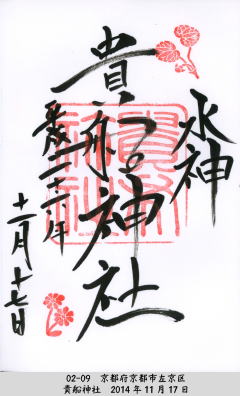 水神
貴船神社
平成二十六年
十一月十七日
02-09 京都府京都市左京区
貴船神社 2014年11月17日